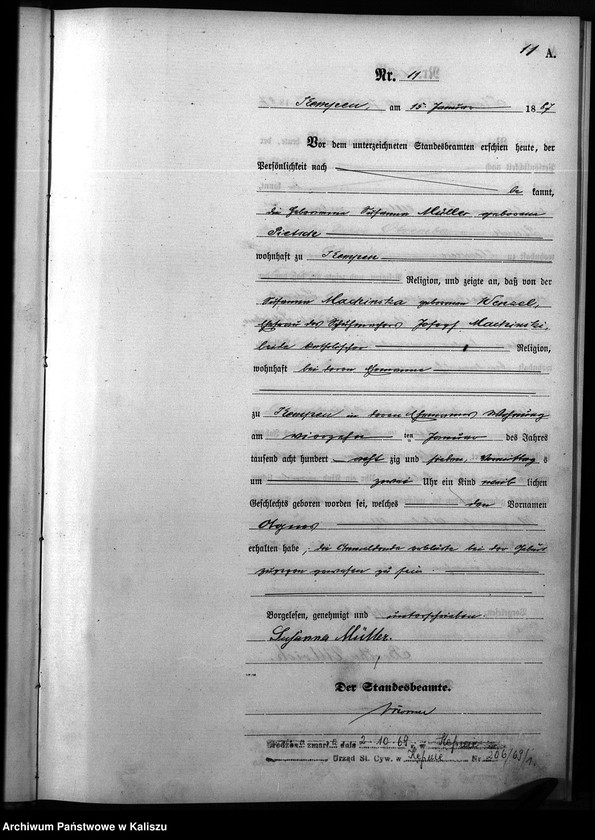 11 A.
Nr. 11
Kempen, am 15 Januar 1887
Vor dem unterzeichneten Standesbeamten erschien heute, der
Persönlichkeit nach
be kannt,
die Hebamme Susanna Müller geborene
Pietsch
wohnhaft zu Kempen
Religion, und zeigte an, daß von der
Susanna Maczinska geborenen Wenzel,
Ehefrau des Schuhmachers Josef Maczinski,
beide katholischer Religion,
wohnhaft bei deren Ehemanne
zu Kempen in deren Ehemannes Wohnung
am vierzehn ten Januar des Jahres
tausend acht hundert acht zig und sieben, Vormittag s
um zwei Uhr ein Kind weib lichen
Geschlechts geboren worden sei, welches den Vornamen
Agnes
erhalten habe, die Anmeldende erklärte bei der Geburt
zugegen gewesen zu sein.
Vorgelesen, genehmigt und unterschrieben
Susanna Müller.
Der Standesbeamte.
zmarł a dnia 2.10.69 w Kępnie
Urząd St. Cyw. w Kępnie Nr 206/69/
Archiwum Państwowe w Kaliszu